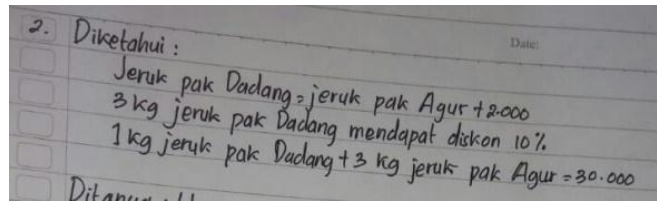 Date:
2. Diketahui :
Jeruk pak Dadang = jeruk pak Agus + 2.000
3 kg jeruk pak Dadang mendapat diskon 10 %.
1 kg jeruk pak Dadang + 3 kg jeruk pak Agus = 30.000